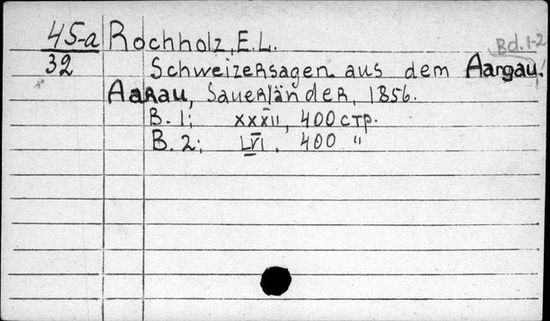 45-a Rochholz, E. L. Bd. 1-2
32 Schweizersagen aus dem Aargau.
Aarau, Sauerländer, 1856.
B. 1: XXXII, 400 стр.
B. 2: LVI, 400 "